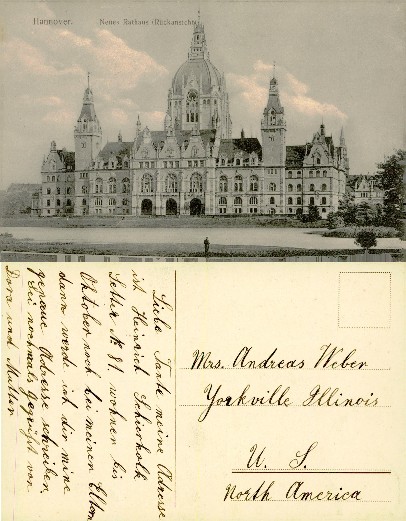 Hannover. Neues Rathaus (Rückansicht)
Liebe Tante meine Adresse
ist Heinrich Schierholk
Setter N. 81. wohnen bis
Oktober noch bei meinen Eltern
dann werde ich dir meine
genaue Adresse schreiben.
Sei nochmals gegrüßt von
Dora und Mutter
Mrs. Andreas Weber
Yorkville Illinois
U. S.
North America